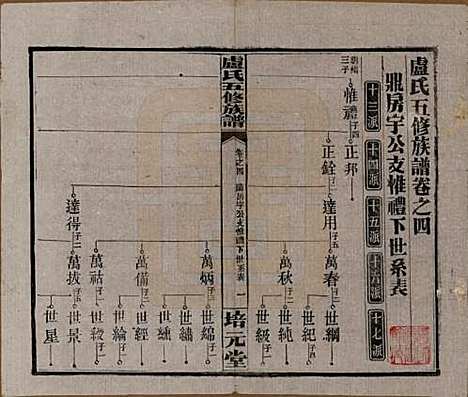 盧氏五修族譜卷之四
鼎房宇公支惟禮下世系表
十三派
十四派
十五派
十六派
十七派
朝楅三子
惟禮子四
正邦
正銓子二
達用子五
萬春子四
世綱
世紀子四
萬秋子二
世純
世級子一
盧氏五修族譜
卷之四
鼎房宇公支惟禮下世系表
一
培元堂
萬炳子三
世綿子二
世繡
世纁
萬備子一
世經
世綸子一
萬祜子二
世緞子一
達得子二
萬拔子三
世景
世星